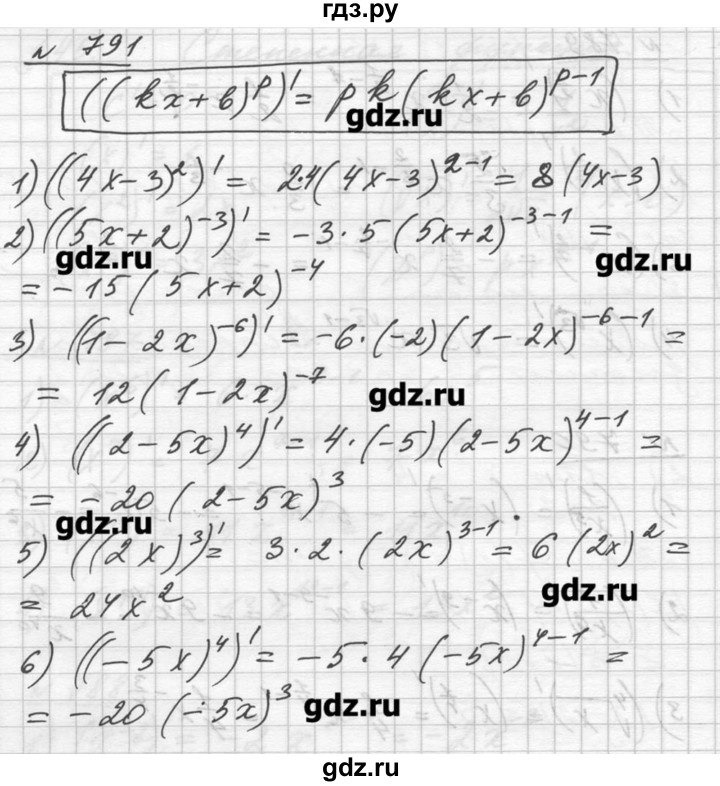 гдз.ру
№ 791
((kx+b)^p)' = pk(kx+b)^{p-1}
gdz.ru
1) ((4x-3)^2)' = 2·4(4x-3)^{2-1} = 8(4x-3)
2) ((5x+2)^{-3})' = -3·5(5x+2)^{-3-1} =
gdz.ru gdz.ru
= -15(5x+2)^{-4}
3) ((1-2x)^{-6})' = -6·(-2)(1-2x)^{-6-1} =
= 12(1-2x)^{-7}
gdz.ru
4) ((2-5x)^4)' = 4·(-5)(2-5x)^{4-1} =
= -20(2-5x)^3
gdz.ru
5) ((2x)^3)' = 3·2·(2x)^{3-1} = 6(2x)^2 =
gdz.ru
= 24x^2
6) ((-5x)^4)' = -5·4(-5x)^{4-1} =
= -20(-5x)^3
gdz.ru
gdz.ru